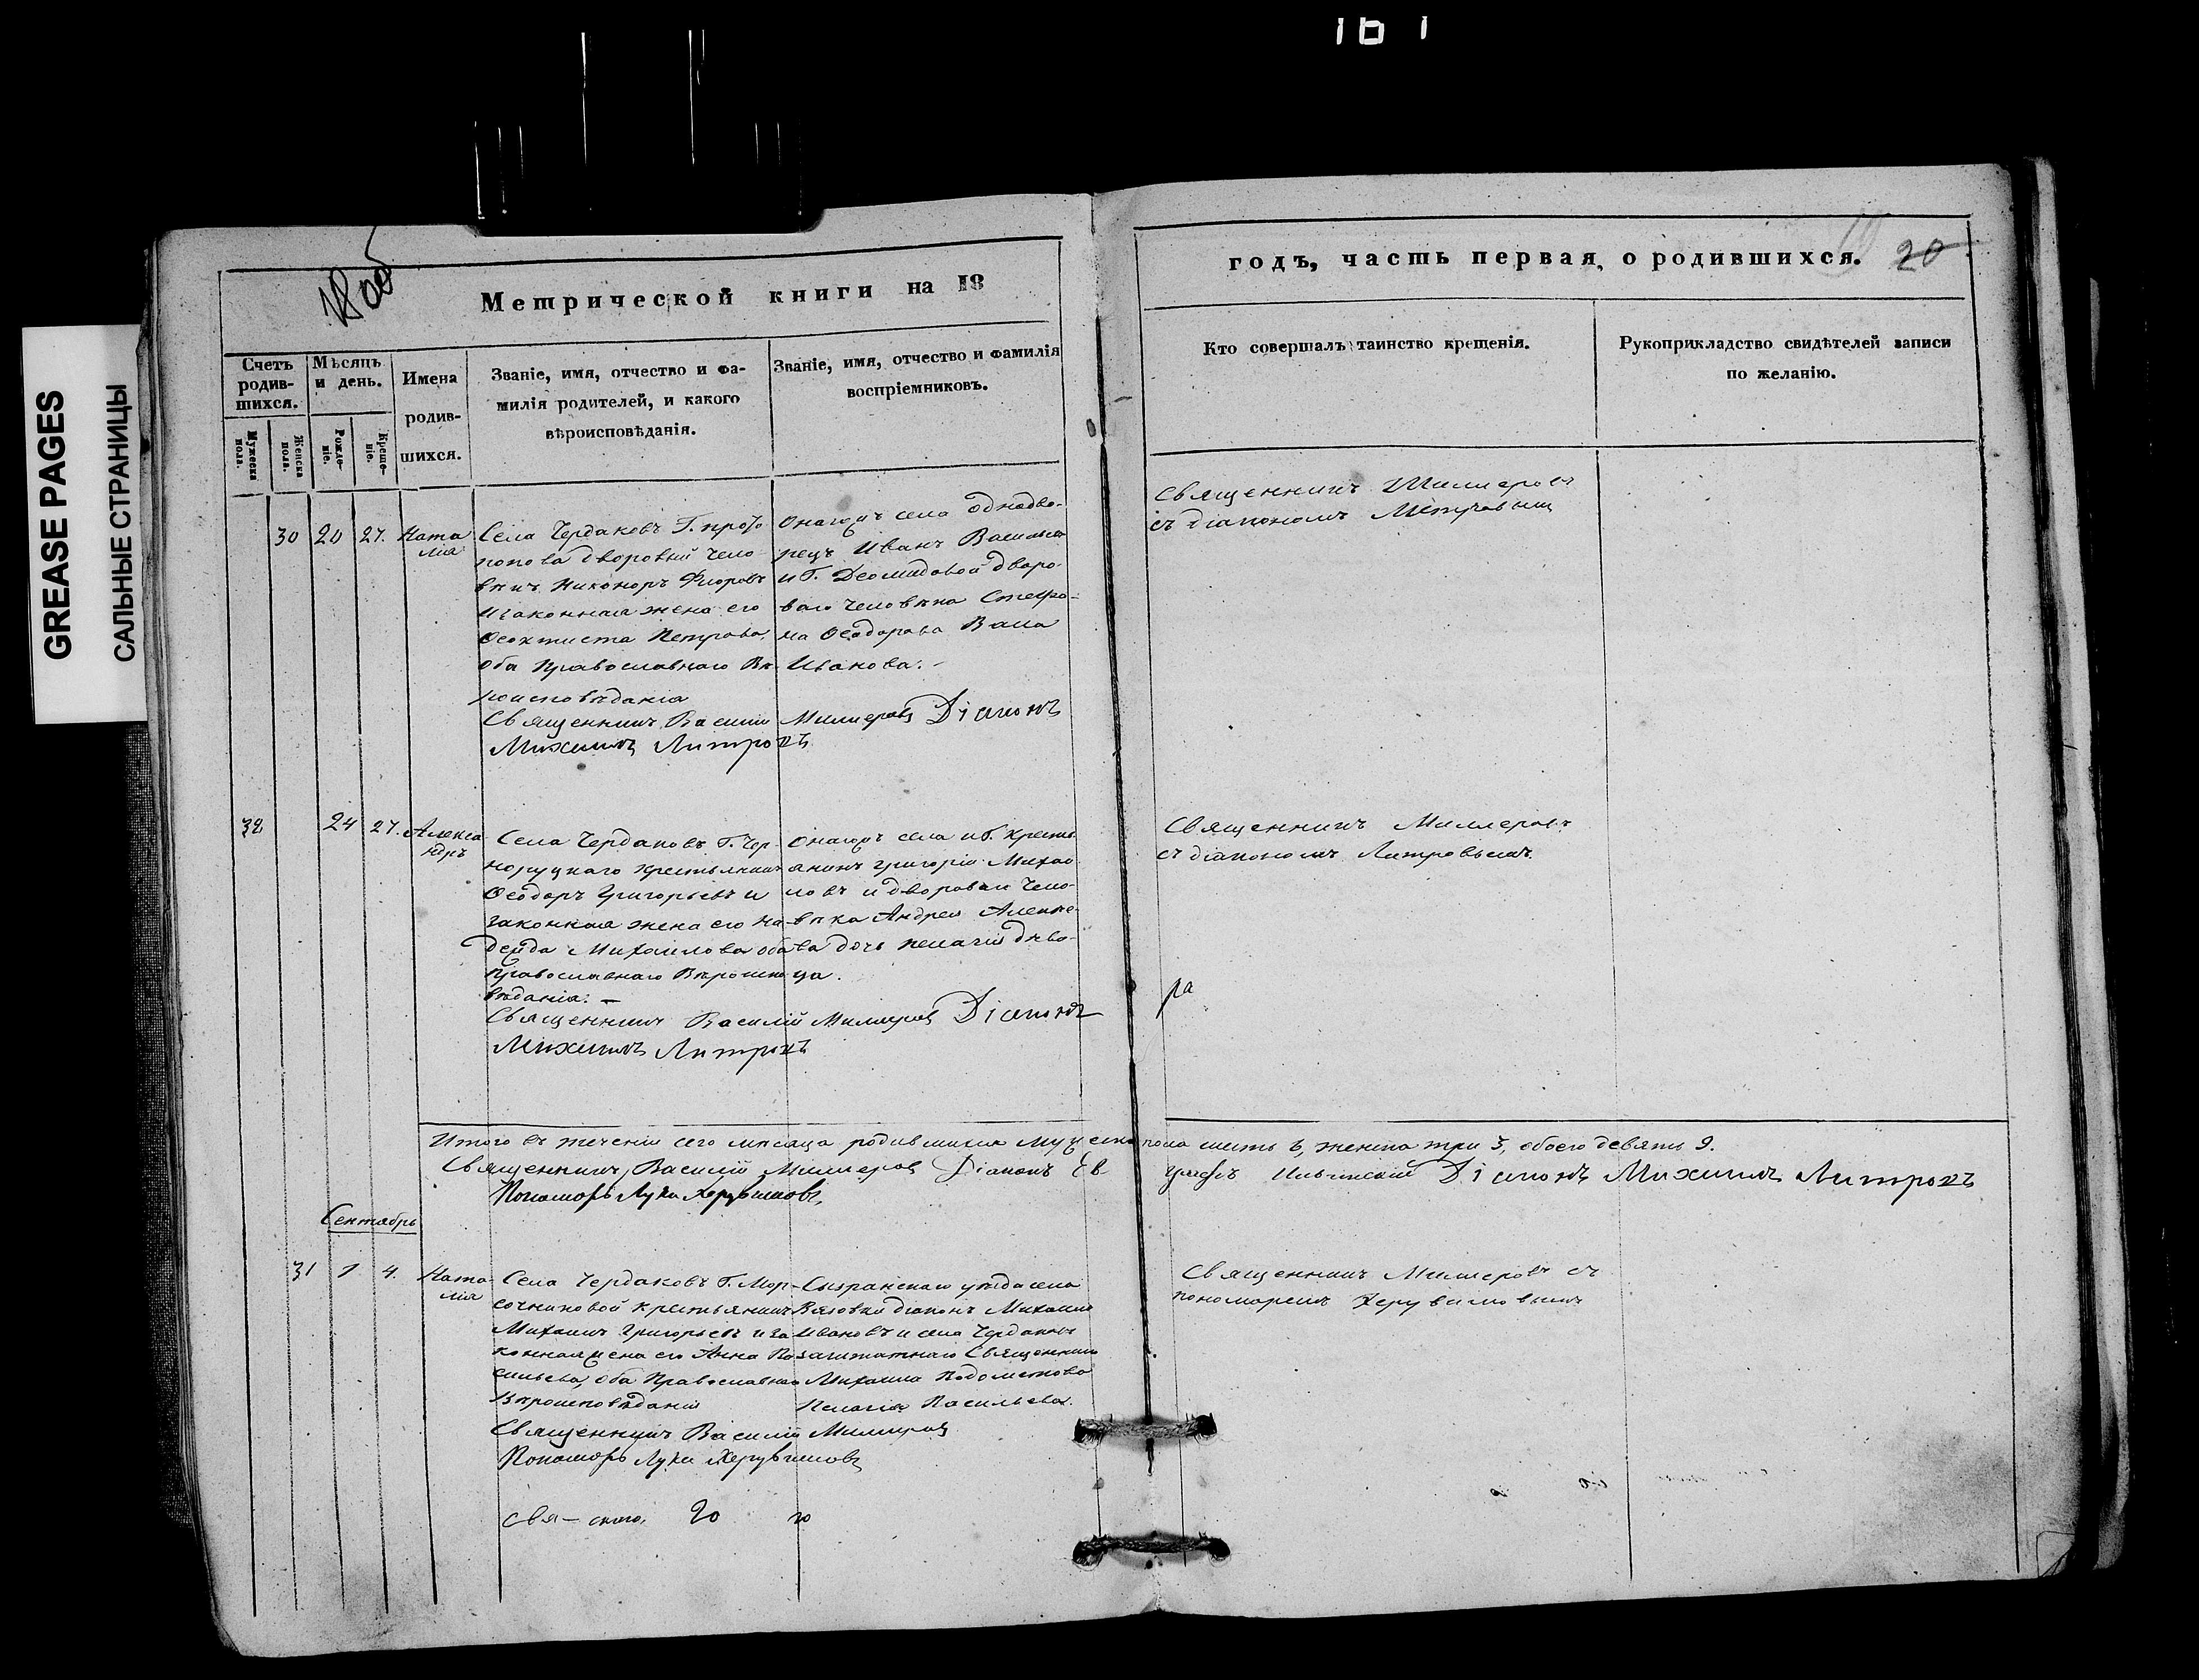 GREASE PAGES
САЛЬНЫЕ СТРАНИЦЫ
18 об
Метрической книги на 18
годъ, часть первая, о родившихся. 20
Счетъ родив-шихся.
Мужеска пола.
Женска пола.
Мѣсяцъ и день.
Рожде-ніе.
Креще-ніе.
Имена родив-шихся.
Званіе, имя, отчество и фа-
милія родителей, и какого
вѣроисповѣданія.
Званіе, имя, отчество и фамилія
воспріемниковъ.
Кто совершалъ таинство крещенія.
Рукоприкладство свидѣтелей записи
по желанію.
30 20 27. Ната
лія
Села Чердаковъ Г. прото
попова дворовый чело
вѣкъ Никоноръ
и законная жена его
Ѳеоктиста Петрова,
оба Православнаго Вѣ
роисповѣданія
Священникъ Василій Миллеровъ Діаконъ
Михаилъ
села однодво-
рецъ Иванъ Васильевъ
и Г. Деомидовой дворо-
ваго человѣка
Ѳеодорова
Иванова.
Священникъ Миллеровъ
съ діакономъ
32 24 27. Алекса
ндръ
Села Чердаковъ Г. Чер-
норуцкаго крестьянинъ
Ѳеодоръ Григорьевъ и
законная жена его На-
дежда Михайлова оба
Православнаго Вѣроиспо
вѣданія. —
Священникъ Василій Миллеровъ Діаконъ
Михаилъ
села и Г. кресть
янинъ Григорій Михай
ловъ и дворовый чело-
вѣка Андрея Алексѣе-
ва дочь Пелагія дѣви-
ца.
Священникъ Миллеровъ
съ діакономъ
ра
Итого въ теченіи сего мѣсяца родившихся мужеска пола шесть 6, женска три 3, обоего девять 9.
Священникъ Василій Миллеровъ Діаконъ Ев
Ильинскій Діаконъ Михаилъ
Пономарь Лука Херувимовъ
Сентябрь
31 1 4. Ната
лія
Села Чердаковъ Г. Мор-
сочниковой крестьянинъ
Михаилъ Григорьевъ и за
конная жена его Анна Ва
сильева, оба Православнаго
Вѣроисповѣданія
Священникъ Василій Миллеровъ
Пономарь Лука Херувимовъ
Сызранскаго уѣзда села
Вязовки діаконъ Михаилъ
Ивановъ и села Чердаковъ
заштатнаго Священника
Михаила
Пелагія Васильева.
Священникъ Миллеровъ съ
пономаремъ Херувимовымъ
Свя— скаго, 20 го